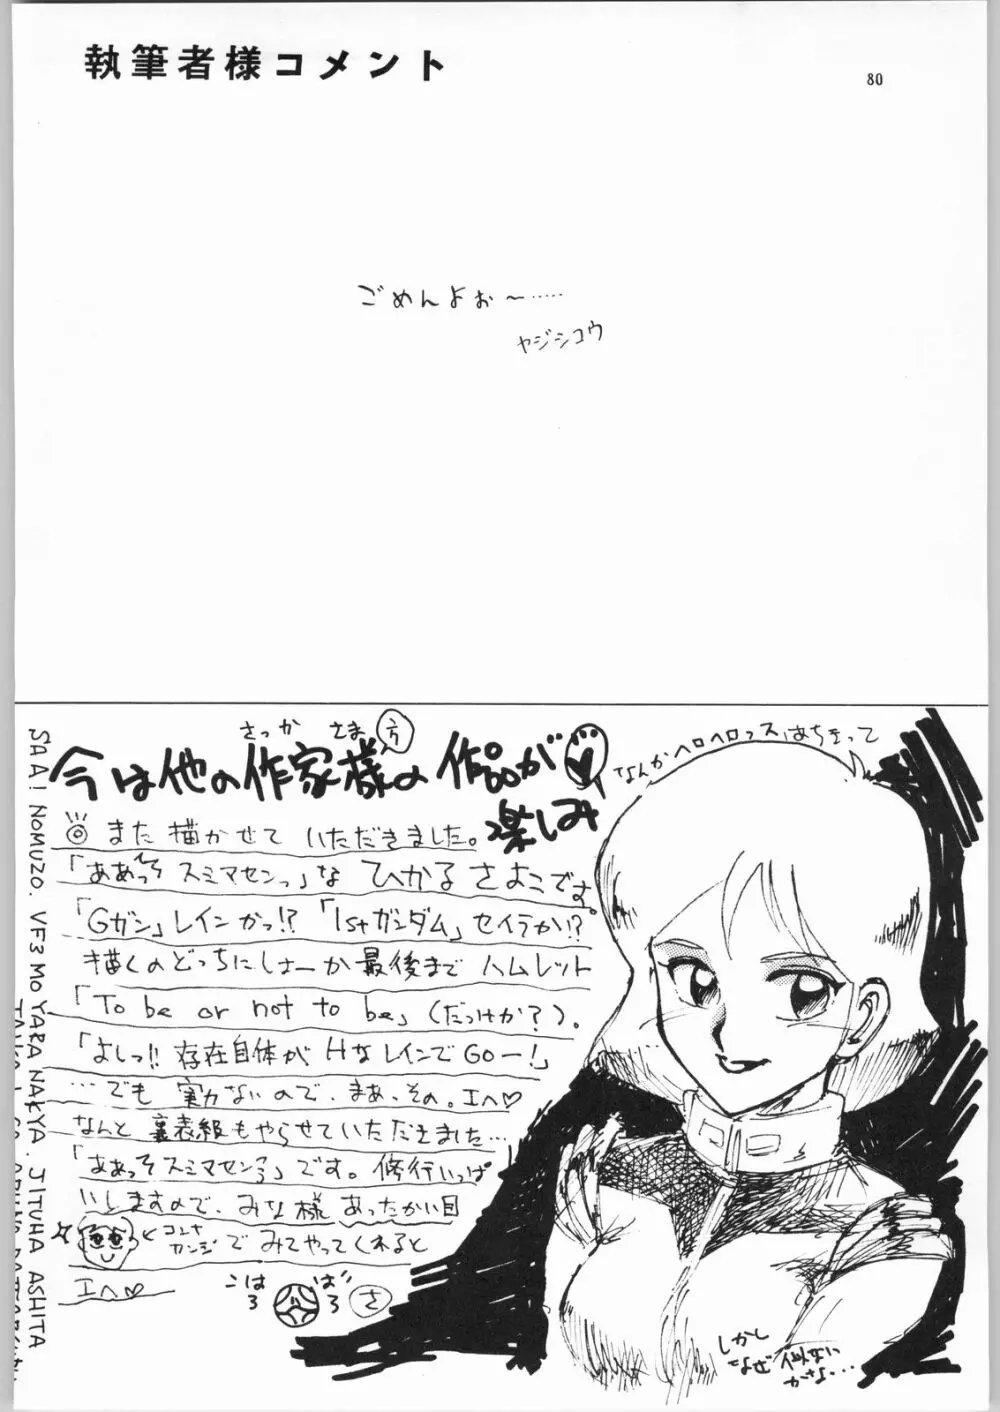 執筆者様コメント
80
ごめんよぉ～……
ヤジシコウ
さっか さま
今は他の作家様の作品が
楽しみ
また描かせていただきました。
「ああっスミマセンっ」な ひかるさよこです。
「Gガン」レインかっ!?「1stガンダム」セイラか!?
描くのどっちにしよーか最後までハムレット
「To be or not to be」(だっけか?)。
「よしっ!!存在自体がHなレインでGOー!」
…でも実力ないので、まあ、その。エヘ♡
なんと裏表紙もやらせていただきました…
「ああっそスミマセンっ」です。修行いっぱ
いしますので、みな様あったかい目
コンナ
カンジ
でみてやってくれると
エヘ♡
さ
なんかヘロヘロっス
しかし
なぜ似ない
かな…
SAA! NOMUZO. VF3 MO YARANAKYA. JITUHA ASHITA